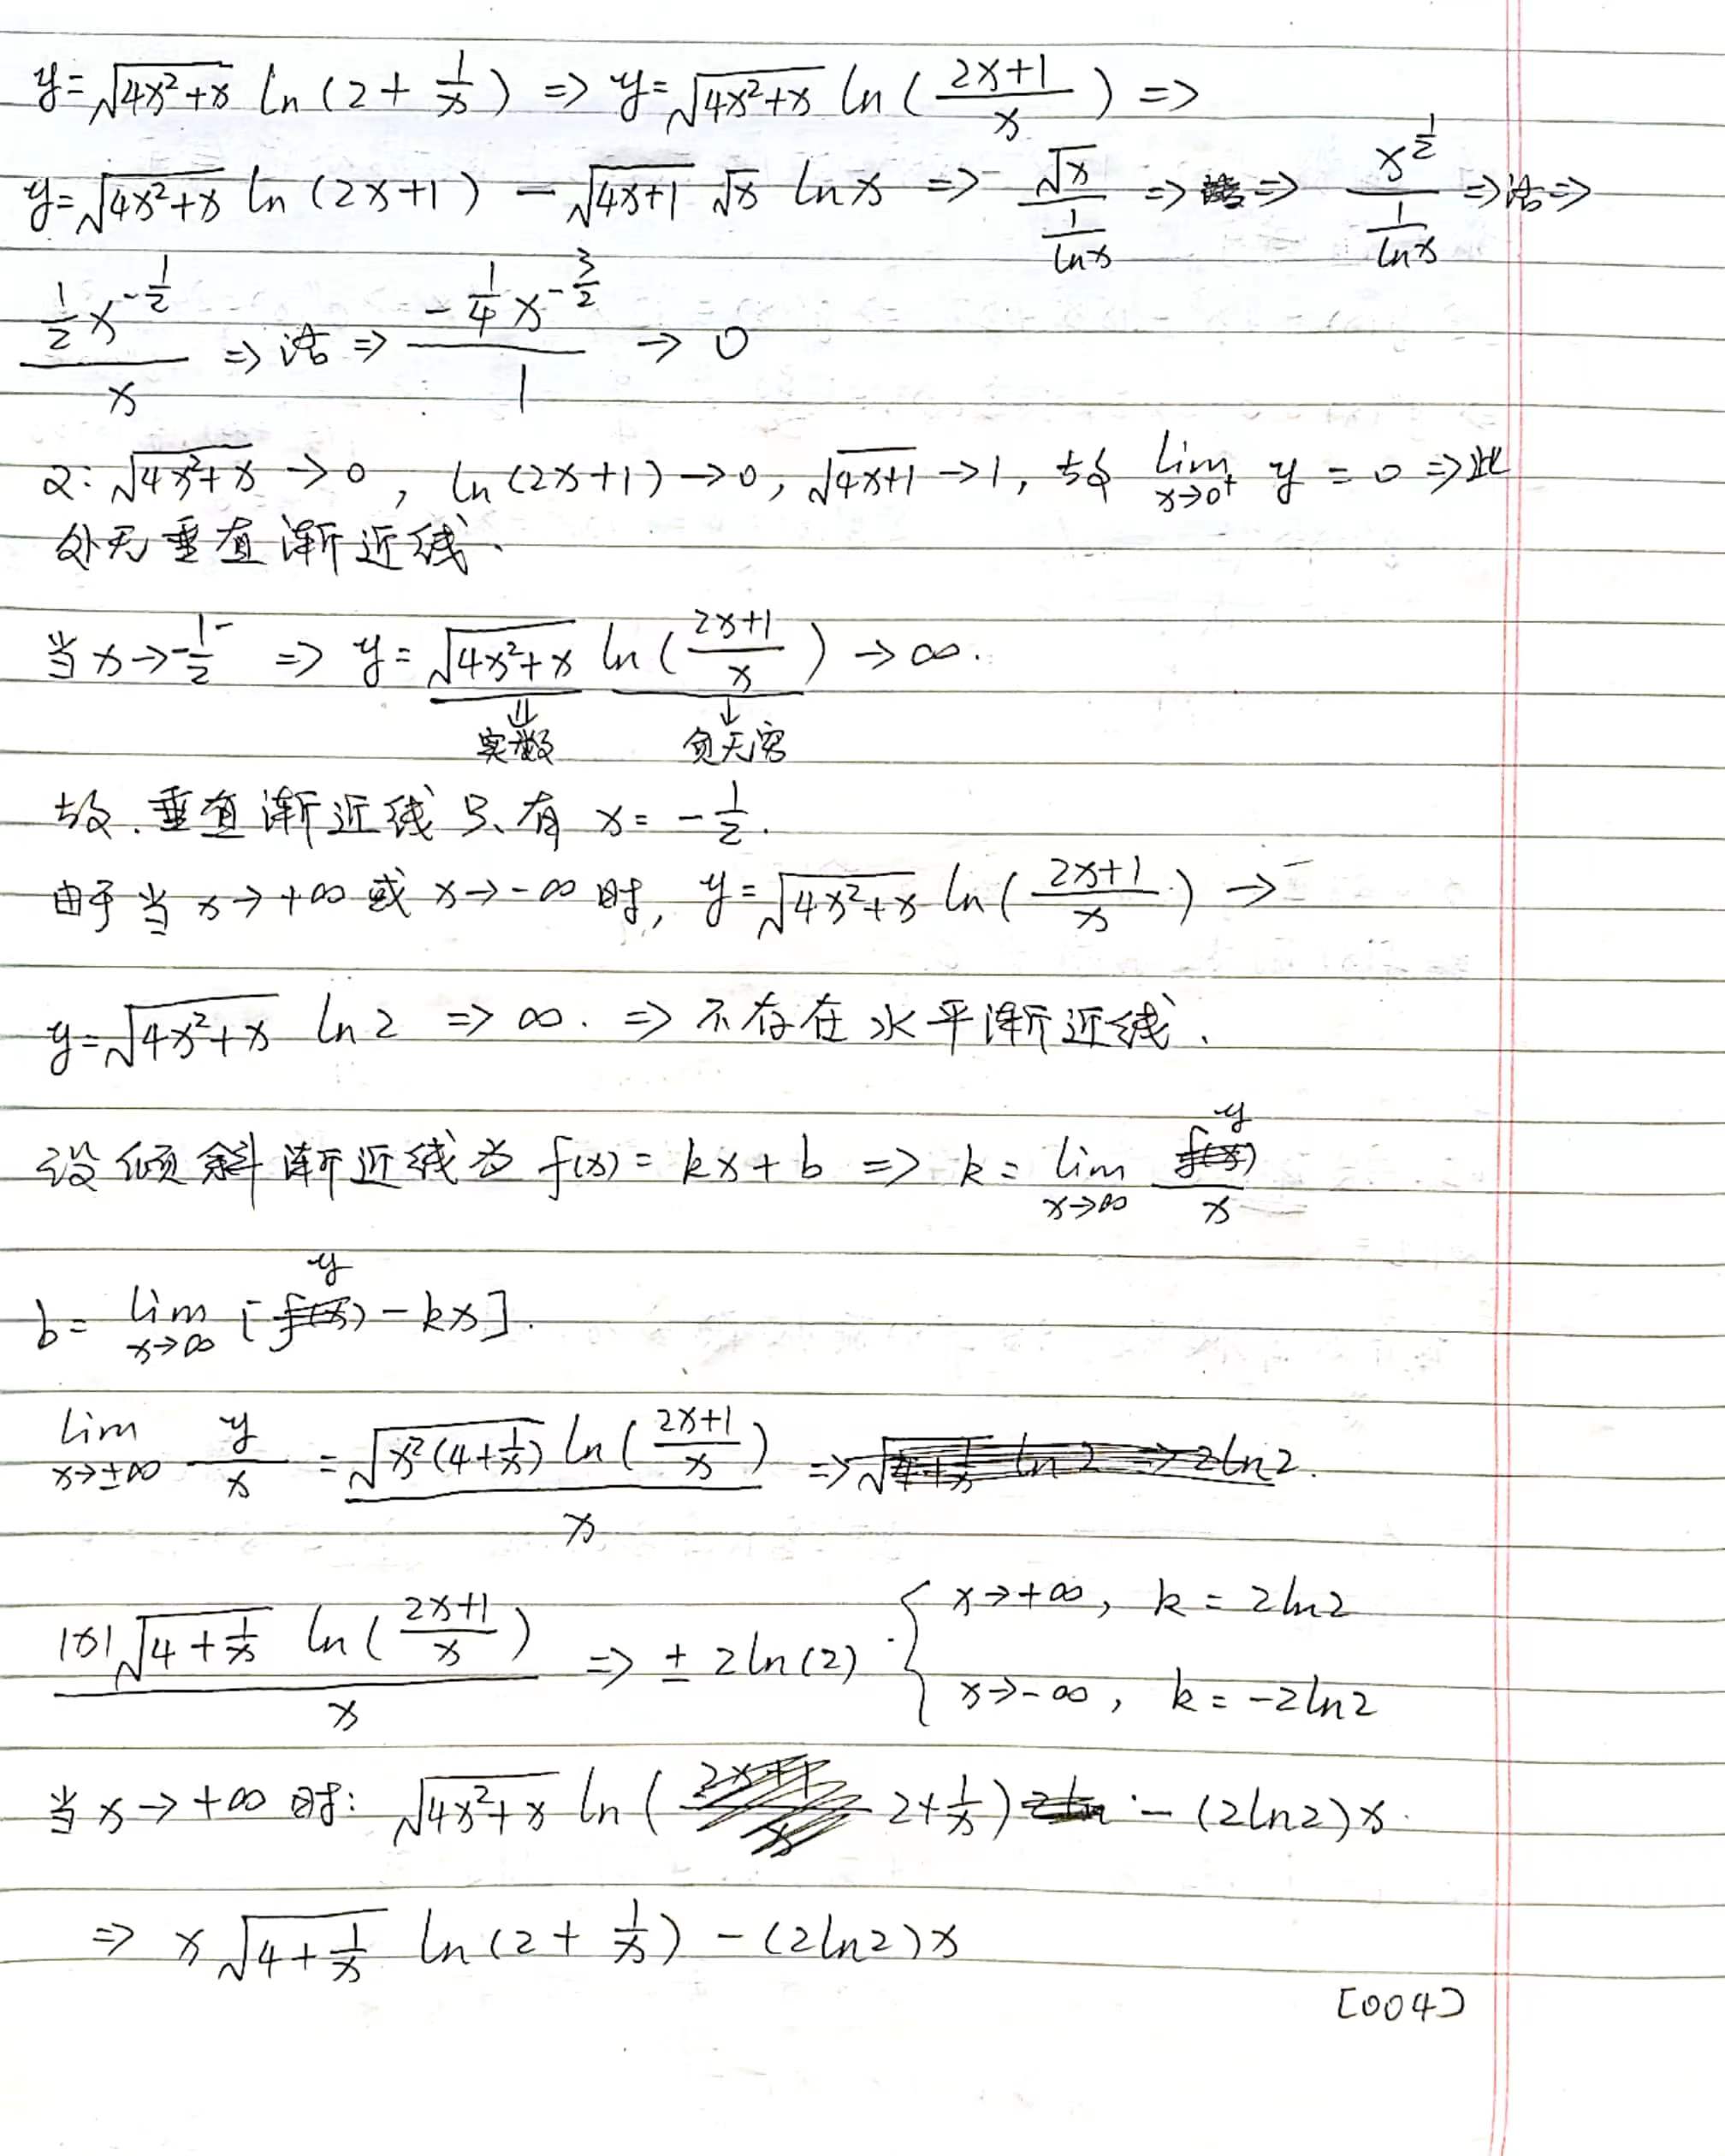 y=√(4x²+x) ln(2+1/x) => y=√(4x²+x) ln((2x+1)/x) =>
y=√(4x²+x) ln(2x+1) - √(4x+1) √x lnx => √x/(1/lnx) => => x^(1/2)/(1/lnx) => 洛 =>
(1/2 x^(-1/2))/x => 洛 => (-1/4 x^(-3/2))/1 → 0
又: √(4x²+x) → 0, ln(2x+1) → 0, √(4x+1) → 1, 故 lim x→0⁺ y = 0 => 此
处无垂直渐近线.
当 x→-1/2⁻ => y=√(4x²+x) ln((2x+1)/x) → ∞.
实数 负无穷
故.垂直渐近线只有 x=-1/2.
由于当 x→+∞ 或 x→-∞ 时, y=√(4x²+x) ln((2x+1)/x) →
y=√(4x²+x) ln2 => ∞. => 不存在水平渐近线.
设倾斜渐近线为 f(x)=kx+b => k= lim x→∞ y/x
b= lim x→∞ [y-kx].
lim x→±∞ y/x = √(x²(4+1/x)) ln((2x+1)/x)/x =>
|x|√(4+1/x) ln((2x+1)/x)/x => ±2ln(2) { x→+∞, k=2ln2
x→-∞, k=-2ln2
当 x→+∞ 时: √(4x²+x) ln(2+1/x) - (2ln2)x.
=> x√(4+1/x) ln(2+1/x) - (2ln2)x
[004]